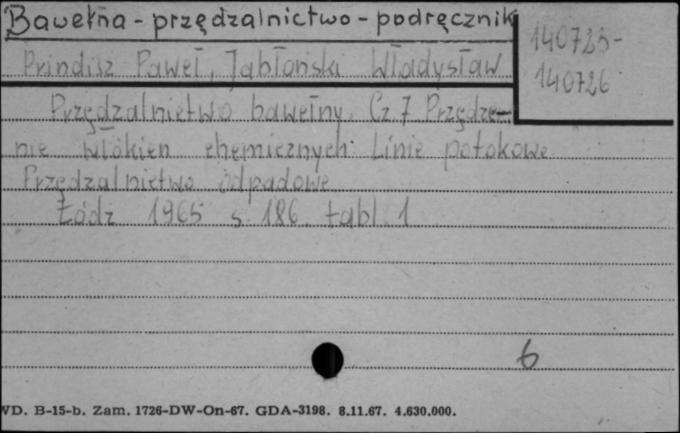 Bawełna - przędzalnictwo - podręcznik
140725-
140726
Prindisz Paweł, Jabłoński Władysław
Przędzalnictwo bawełny. Cz. 7 Przędze-
nie włókien chemicznych. Linie potokowe.
Przędzalnictwo odpadowe
Łódź 1965 s. 186. tabl. 1
6
WD. B-15-b. Zam. 1726-DW-On-67. GDA-3198. 8.11.67. 4.630.000.